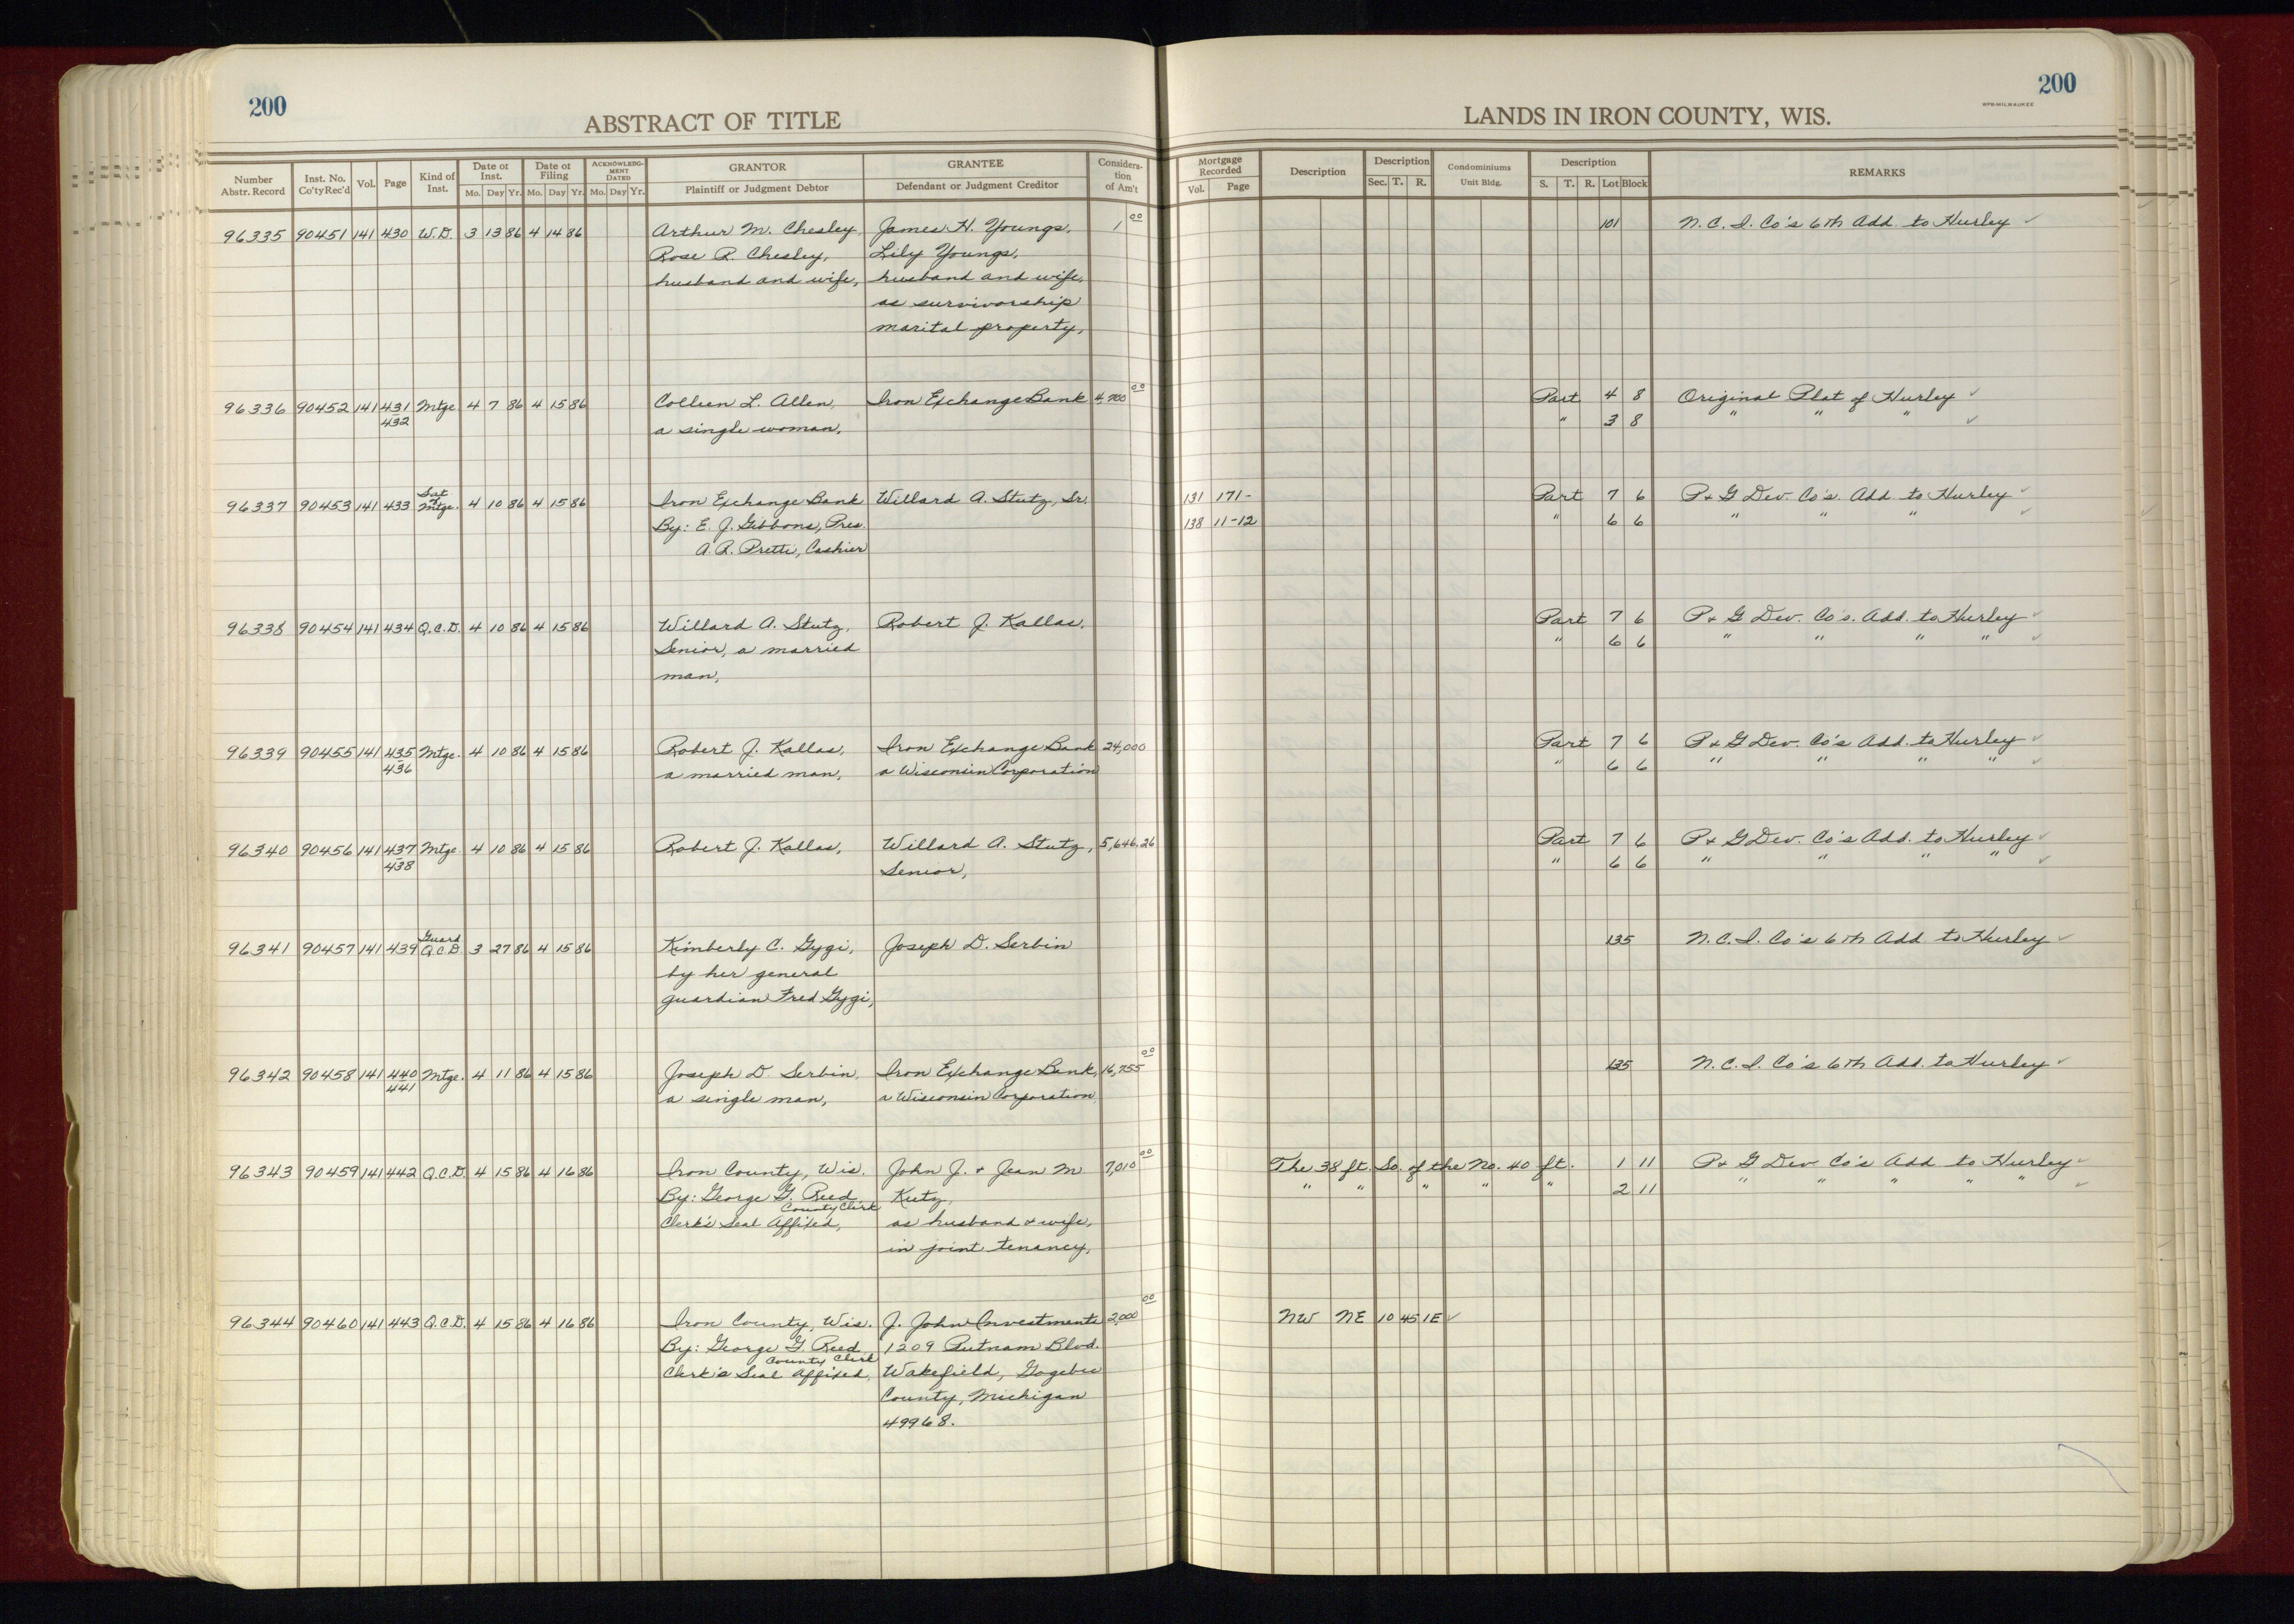 200
ABSTRACT OF TITLE
LANDS IN IRON COUNTY, WIS.
WPB-MILWAUKEE
200
Number Abstr. Record | Inst. No. Co'ty Rec'd | Vol. | Page | Kind of Inst. | Date of Inst. Mo. Day Yr. | Date of Filing Mo. Day Yr. | ACKNOWLEDGMENT DATED Mo. Day Yr. | GRANTOR Plaintiff or Judgment Debtor | GRANTEE Defendant or Judgment Creditor | Consideration of Am't | Mortgage Recorded Vol. Page | Description | Description Sec. T. R. | Condominiums Unit Bldg. | Description S. T. R. Lot Block | REMARKS
96335 90451 141 430 W.D. 3 13 86 4 14 86 Arthur M. Chesley, James H. Youngs, 1 00 101 N.C.I. Co's 6th Add. to Hurley ✓
Rose R. Chesley, Lily Youngs,
husband and wife, husband and wife,
as survivorship
marital property,
96336 90452 141 431 Mtge 4 7 86 4 15 86 Colleen L. Allen, Iron Exchange Bank 4,700 00 Part 4 8 Original Plat of Hurley ✓
432 a single woman, " 3 8 " " " ✓
96337 90453 141 433 Sat of Mtge. 4 10 86 4 15 86 Iron Exchange Bank Willard A. Stutz, Sr. 131 171- Part 7 6 P & G Dev. Co's. Add. to Hurley ✓
By: E. J. Gibbons, Pres. 138 11-12 " 6 6 " " " ✓
A. R. Pretti, Cashier
96338 90454 141 434 Q.C.D. 4 10 86 4 15 86 Willard A. Stutz, Robert J. Kallas, Part 7 6 P & G Dev. Co's. Add. to Hurley ✓
Senior, a married " 6 6 " " " " ✓
man,
96339 90455 141 435 Mtge. 4 10 86 4 15 86 Robert J. Kallas, Iron Exchange Bank 24,000 Part 7 6 P & G Dev. Co's Add. to Hurley ✓
436 a married man, a Wisconsin Corporation " 6 6 " " " " ✓
96340 90456 141 437 Mtge. 4 10 86 4 15 86 Robert J. Kallas, Willard A. Stutz, 5,646.26 Part 7 6 P & G Dev. Co's Add. to Hurley ✓
438 Senior, " 6 6 " " " " ✓
96341 90457 141 439 Guard Q.C.D. 3 27 86 4 15 86 Kimberly C. Gygi, Joseph D. Serbin 135 N.C.I. Co's 6th Add. to Hurley ✓
by her general
guardian Fred Gygi,
96342 90458 141 440 Mtge. 4 11 86 4 15 86 Joseph D. Serbin, Iron Exchange Bank, 16,755 00 135 N.C.I. Co's 6th Add. to Hurley ✓
441 a single man, a Wisconsin Corporation,
96343 90459 141 442 Q.C.D. 4 15 86 4 16 86 Iron County, Wis. John J. & Jean M 7,010 00 The 38 ft. So. of the No. 40 ft. 1 11 P & G Dev Co's Add to Hurley ✓
By: George G. Reed Kutz, " " " " " 2 11 " " " " " ✓
County Clerk
Clerk's Seal Affixed, as husband & wife,
in joint tenancy,
96344 90460 141 443 Q.C.D. 4 15 86 4 16 86 Iron County, Wis. J. John Investments 2,000 00 NW NE 10 45 1E ✓
By: George G. Reed 1209 Putnam Blvd.
County Clerk
Clerk's Seal Affixed, Wakefield, Gogebic
County, Michigan
49968.